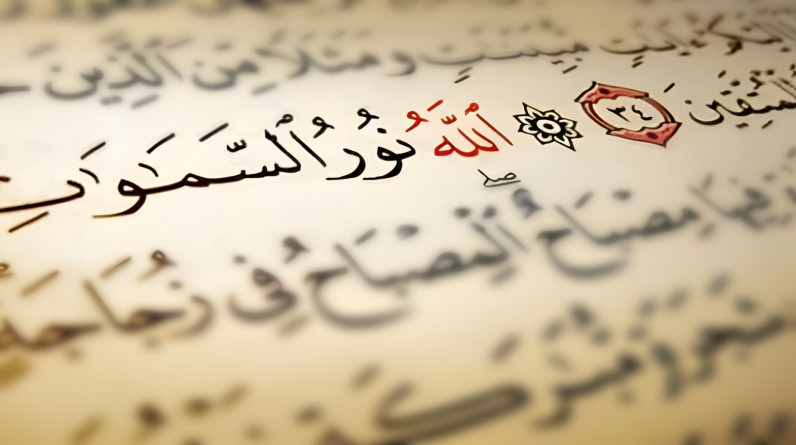 ءَايَٰتٍ مُّبَيِّنَٰتٍ وَمَثَلًا مِّنَ ٱلَّذِينَ
لِّلْمُتَّقِينَ ٣٤ ۞ ٱللَّهُ نُورُ ٱلسَّمَٰوَٰتِ
فِيهَا مِصْبَاحٌ ۖ ٱلْمِصْبَاحُ فِي زُجَاجَةٍ
شَجَرَةٍ مُّبَٰرَكَةٍ